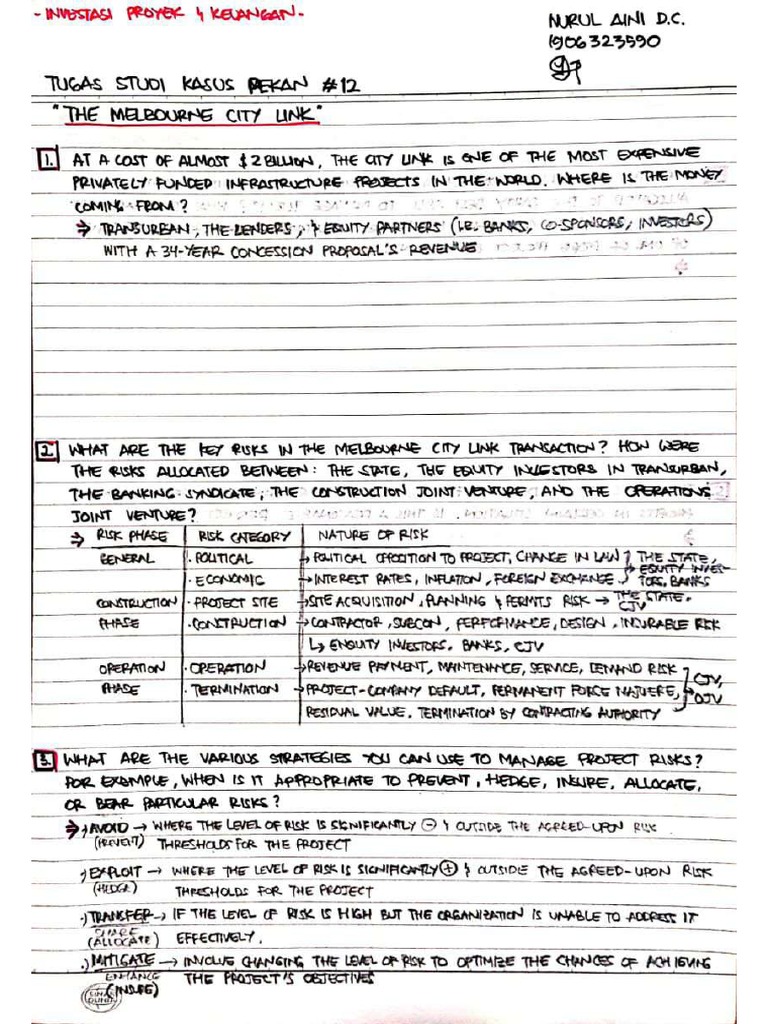 - INVESTASI PROYEK & KEUANGAN -
NURUL AINI D.C.
1906323590
TUGAS STUDI KASUS PEKAN #12
"THE MELBOURNE CITY LINK"
1. AT A COST OF ALMOST $2 BILLION, THE CITY LINK IS ONE OF THE MOST EXPENSIVE
PRIVATELY FUNDED INFRASTRUCTURE PROJECTS IN THE WORLD. WHERE IS THE MONEY
COMING FROM?
⇒ TRANSURBAN, THE LENDERS, & EQUITY PARTNERS (I.E. BANKS, CO-SPONSORS, INVESTORS)
WITH A 34-YEAR CONCESSION PROPOSAL'S REVENUE
2. WHAT ARE THE KEY RISKS IN THE MELBOURNE CITY LINK TRANSACTION? HOW WERE
THE RISKS ALLOCATED BETWEEN: THE STATE, THE EQUITY INVESTORS IN TRANSURBAN,
THE BANKING SYNDICATE, THE CONSTRUCTION JOINT VENTURE, AND THE OPERATIONS
JOINT VENTURE?
⇒ RISK PHASE | RISK CATEGORY | NATURE OF RISK
GENERAL | · POLITICAL | → POLITICAL OPPOSITION TO PROJECT, CHANGE IN LAW } THE STATE,
· ECONOMIC | → INTEREST RATES, INFLATION, FOREIGN EXCHANGE } → EQUITY INVES-
TORS, BANKS
CONSTRUCTION | · PROJECT SITE | → SITE ACQUISITION, PLANNING & PERMITS RISK → THE STATE,
CJV
PHASE | · CONSTRUCTION | → CONTRACTOR, SUBCON, PERFORMANCE, DESIGN, INSURABLE RISK
↳ ENQUITY INVESTORS, BANKS, CJV
OPERATION | · OPERATION | → REVENUE PAYMENT, MAINTENANCE, SERVICE, DEMAND RISK } CJV,
PHASE | · TERMINATION | → PROJECT-COMPANY DEFAULT, PERMANENT FORCE MAJUERE, } OJV
RESIDUAL VALUE, TERMINATION BY CONTRACTING AUTHORITY
3. WHAT ARE THE VARIOUS STRATEGIES YOU CAN USE TO MANAGE PROJECT RISKS?
FOR EXAMPLE, WHEN IS IT APPROPRIATE TO PREVENT, HEDGE, INSURE, ALLOCATE,
OR BEAR PARTICULAR RISKS?
⇒ ·) AVOID → WHERE THE LEVEL OF RISK IS SIGNIFICANTLY ⊖ & OUTSIDE THE AGREED-UPON RISK
(PREVENT) THRESHOLDS FOR THE PROJECT
·) EXPLOIT → WHERE THE LEVEL OF RISK IS SIGNIFICANTLY ⊕ & OUTSIDE THE AGREED-UPON RISK
(HEDGE) THRESHOLDS FOR THE PROJECT
·) TRANSFER → IF THE LEVEL OF RISK IS HIGH BUT THE ORGANIZATION IS UNABLE TO ADDRESS IT
SHARE
(ALLOCATE) EFFECTIVELY.
·) MITIGATE → INVOLVE CHANGING THE LEVEL OF RISK TO OPTIMIZE THE CHANCES OF ACHIEVING
ENHANCE THE PROJECT'S OBJECTIVES
(INSURE)